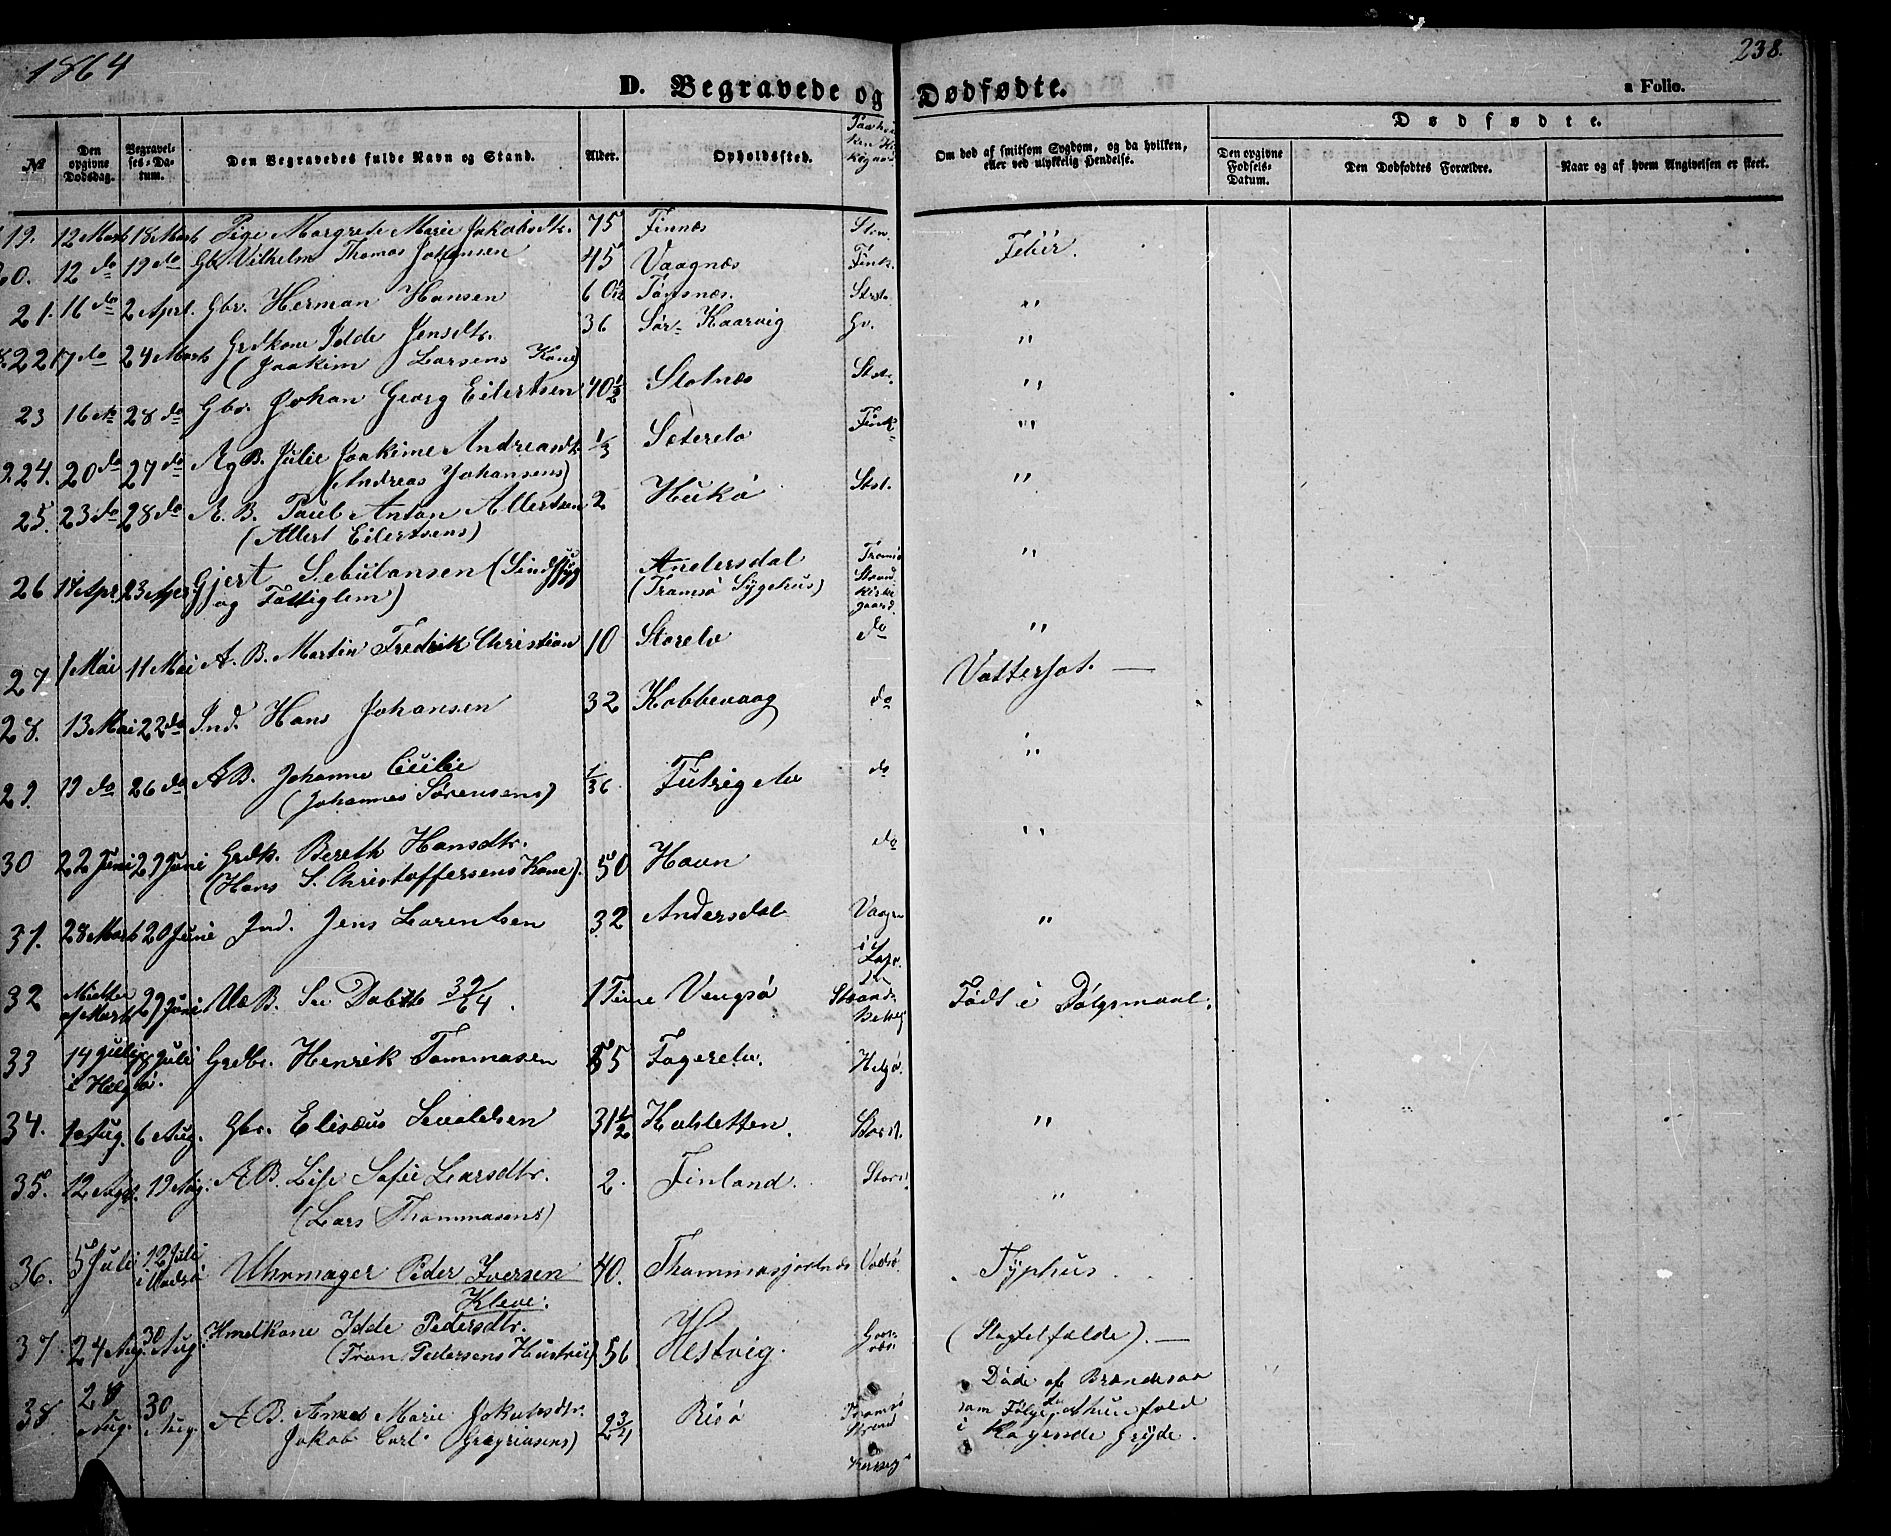 1864
238.
D. Begravede og Dødfødte.
a Folio.
No
Den opgivne Dødsdag.
Begravelses-Datum.
Den Begravedes fulde Navn og Stand.
Alder.
Opholdssted.
Om død af smitsom Sygdom, og da hvilken, eller ved ulykkelig Hendelse.
Dødfødte.
Den opgivne Fødsels-Datum.
Den Dødfødtes Forældre.
Naar og af hvem Angivelsen er skeet.
19. 12 Marts 18 Marts Pige Margrete Marie Jakobsdtr. 75 Finnæs
20. 12 do 19 do Gbr Vilhelm Thomas Johansen 45 Vaagnæs Feber.
21. 16 do 2 Aprl. Gbr. Herman Hansen 60 Tønsnæs. "
22 17 do 24 Marts Grdkone Idde Jensdtr. 36 Sør-Kaarvig Hv. "
(Joakim Larsens Kone)
23 16 do 28 do Gbr. Johan Georg Eilertsen 40 1/2 Slotnæs "
24. 20 do 27 do Æg B. Julie Joakime Andreasdtr. 1/3 Sæterelv "
(Andreas Johansens)
25. 23 do 28 do Æ. B. Paul Anton Albertsen 2 Hukø "
(Albert Eilertsens)
26 14 Apr. 23 Apr Gjert Sebulonsen (Sindssyg Andersdal Tromsø "
og Fattiglem) (Tromsø Sygehus) Strand Kirkegaard.
27 1 Mai 11 Mai A. B. Martin Fredrik Christian 10 Storelv do "
28. 13 Mai 22 do Ind. Hans Johansen 32 Kobbevaag do Vattersot. —
29. 19 do 26 do Æ B. Johanne Cecilie 1/36 Futrigelv do "
(Johannes Sørensens)
30 22 Juni 29 Juni Grdk. Bereth Hansdtr. 50 Havn do "
(Hans S. Christoffersens Kone).
31. 28 Marts 20 Juni Ind. Jens Lorentsen 32 Andersdal Vaagen "
32 Midten af Marts 29 Juni Uæ B. Se Dobte 39/64. 1 Time Vengsø Strand Født i Dølgsmaal.
33 14 Juli 18 Juli Grdbr. Henrik Tommasen 55 Fagerelv. Helgø.
i Helgø.
34. 1 Aug. 6 Aug. Gbr. Elisæus Sevaldsen 31 1/2 Kalsletten. "
35. 12 Aug. 19 Aug. Æ B. Lise Sofie Larsdtr. 2. Finland. "
(Lars Thommasens)
36. 5 Juli 12 Juli i Vadsø Uhrmager Peder Iversen Kleve. 40. Thommasjordnæs Vadsø. Typhus
37. 24 Aug. 30 Aug. Hmdkone Idde Pedersdtr. 56 Hestvig. (Slagtilfælde). —
(Tron Pedersens Hustru)
38. 28 Aug. 30 Aug. Æ B. Anne Marie Jakobsdtr. 2 3/4 Risø Tromsø Døde af Brandsaar
Jakob Carl Gregriusens) Strand som Følge at hun fald
i kogende Gryde.